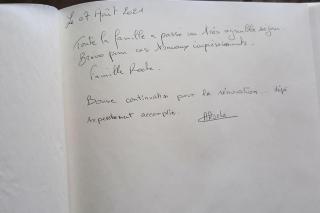 Le 07 Août 2021
Toute la famille a passé un très agréable séjour
Bravo pour ces travaux
Famille Roche.
Bonne continuation pour la rénovation... déjà
superbement accomplie.